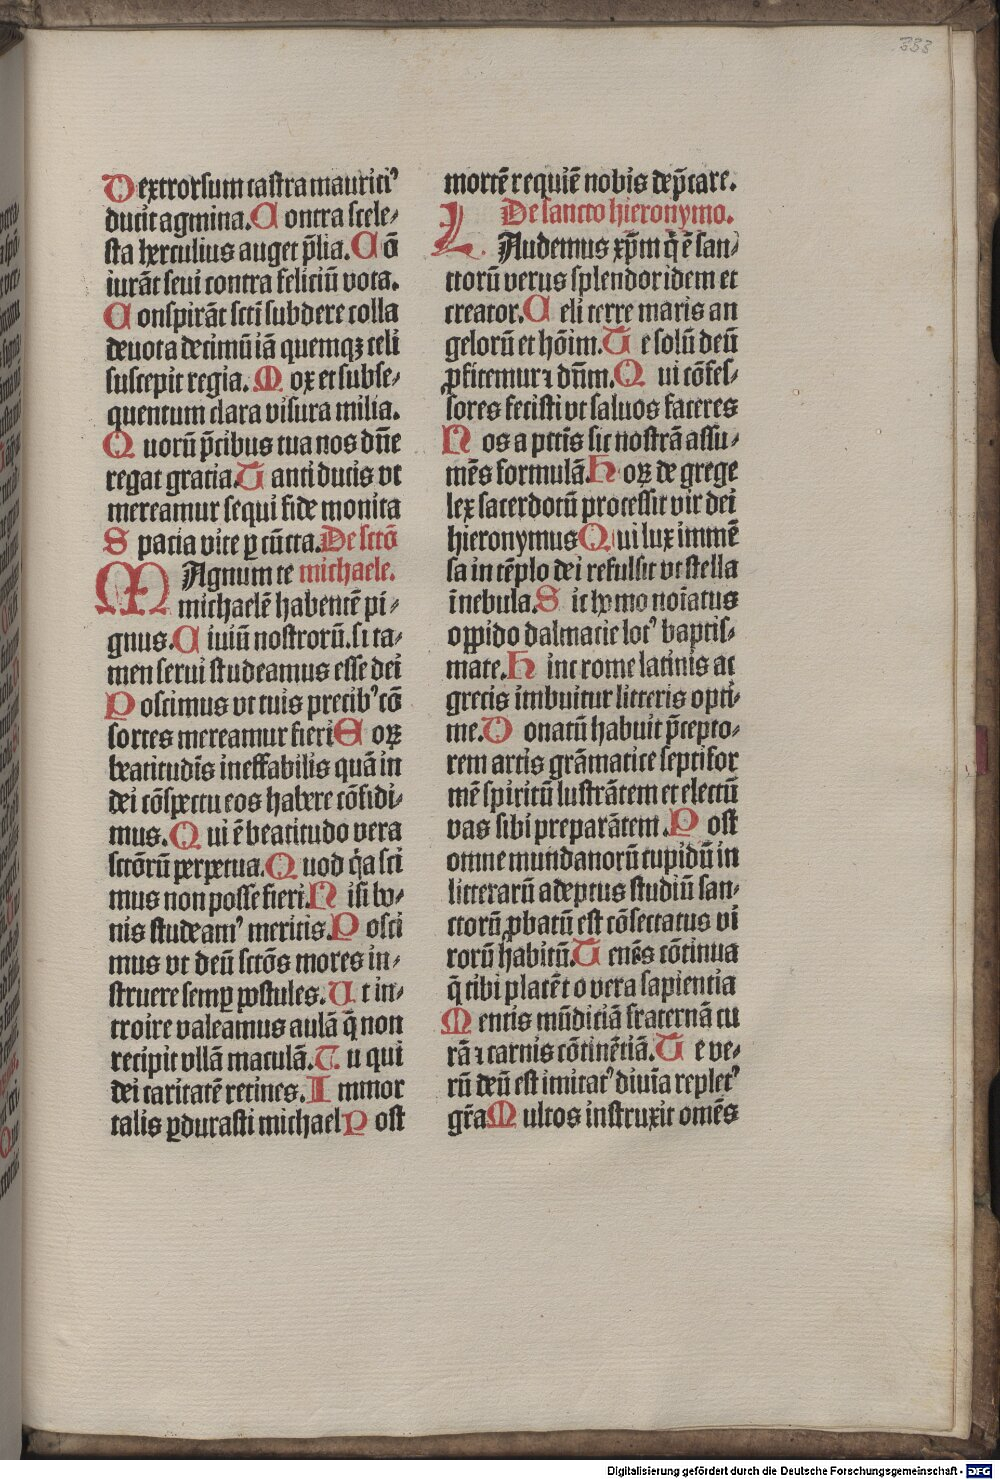 333
Dextrorsum castra mauriciꝰ
ducit agmina. Contra scele⸗
sta herculius auget p̄lia. Cō
iurāt seui contra feliciū vota.
Conspirāt scti subdere colla
deuota decimū iā quemqꝫ celi
suscepit regia. Mox et subse⸗
quentum clara visura milia.
Quorū p̄cibus tua nos dn̄e
regat gratia. Tanti ducis vt
mereamur sequi fide monita
Spacia vite ꝑ cūcta. De sctō
MAgnum te michaele.
michaelē habentē pi⸗
gnus. Ciuiū nostrorū. si ta⸗
men serui studeamus esse dei
Poscimus vt tuis precibꝰ cō
sortes mereamur fieri Eoꝝ
beatitudīs ineffabilis quā in
dei cōspectu eos habere cōfidi⸗
mus. Qui ē beatitudo vera
sctōrū perpetua. Quod q̄a sci
mus non posse fieri. Nisi bo⸗
nis studeamꝰ meritis. Posci
mus vt deū sctōs mores in⸗
struere semꝑ postules. Ut in⸗
troire valeamus aulā q̄ non
recipit vllā maculā. Tu qui
dei caritatē retines. Immor
talis ꝑdurasti michael Post
mortē requiē nobis dep̄care.
De sancto hieronymo.
LAudemus xp̄m q̄ ē san⸗
ctorū verus splendor idem et
creator. Celi terre maris an
gelorū et hōim. Te solū deū
ꝓfitemur ⁊ dn̄m. Qui cōfes⸗
sores fecisti vt saluos faceres
Nos a pctīs sic nostrā assu⸗
mēs formulā. Hoꝝ de grege
lex sacerdotū processit vir dei
hieronymus Qui lux immē
sa in tēplo dei refulsit vt stella
ī nebula. Sic homo noīatus
oppido dalmacie locꝰ baptis⸗
mate. Hinc rome latinis ac
grecis imbuitur litteris opti⸗
me. Donatū habuit p̄cepto⸗
rem artis grāmatice septifor
mē spiritū lustrātem et electū
vas sibi preparātem. Post
omne mundanorū cupidū in
litterarū adeptus studiū san⸗
ctorū ꝓbatū est cōsectatus vi
rorū habitū. Tenēs cōtinua
q̄ tibi placēt o vera sapientia
Mentis mūdiciā fraternā cu
rā ⁊ carnis cōtinētiā. Te ve⸗
rū deū est imitatꝰ diuīa repletꝰ
gr̄a Multos instruxit omēs
Digitalisierung gefördert durch die Deutsche Forschungsgemeinschaft - DFG